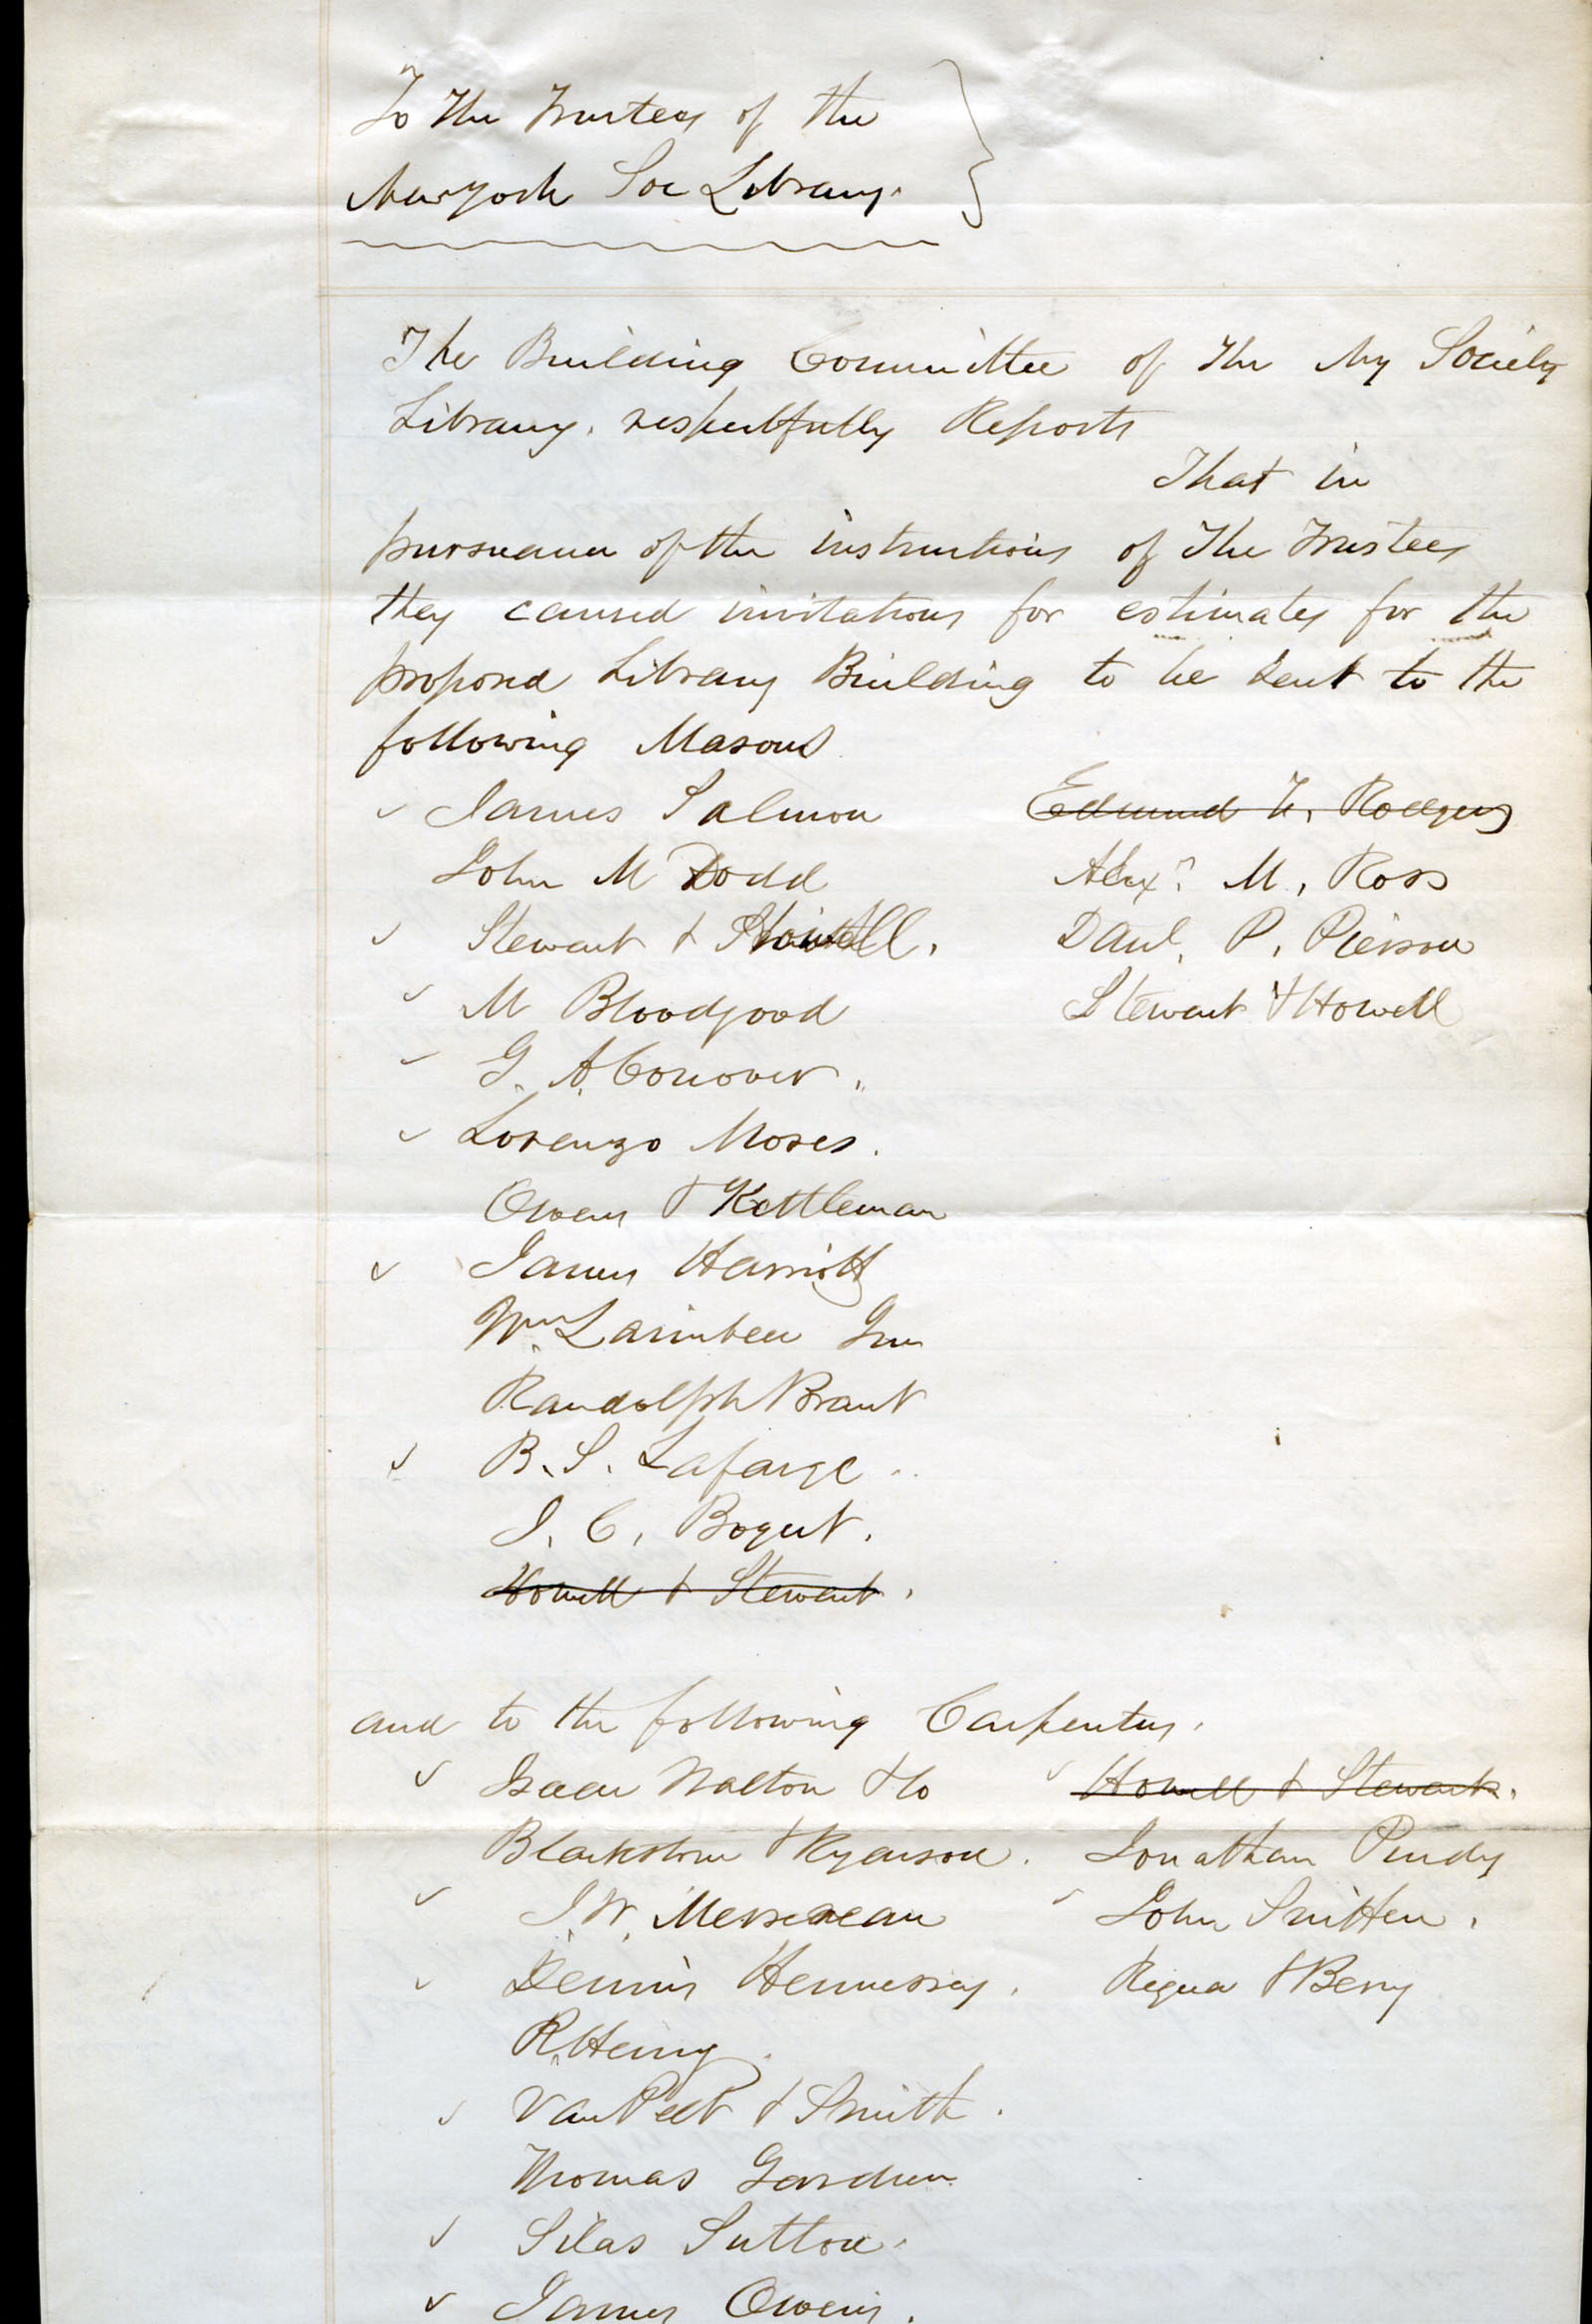 To The Trustees of the
New york Soc Library.
The Building Committee of The Ny Society
Library. respectfully Reports
That in
pursuance of the instructions of The Trustees
they caused invitations for estimates for the
proposed Library Building to be sent to the
following Masons
✓ James Salmon Edmund Rodgers
John M Dodd Alexr. M, Ross
✓ Stewart & Howell. Danl. P. Pierson
✓ M Bloodgood Stewart & Howell
✓ G. A. Conover.
✓ Lorenzo Moses.
Owens & Kettleman
✓ James Harriott
Wm. Jun
Randolph Brant
✓ B. S. Lafarge
J. C, Bogert.
Howell & Stewart.
and to the following Carpenters.
✓ Isaac Walton & Co ✓ Howell & Stewart.
Blackstone & Ryerson. Jonathan Purdy
✓ J. W. Mersereau ✓ John Smitten.
✓ Dennis Hennessey. Requa & Berry
R.
✓ Van Pelt & Smith.
Thomas Gardner
✓ Silas Sutton.
✓ James Owens.